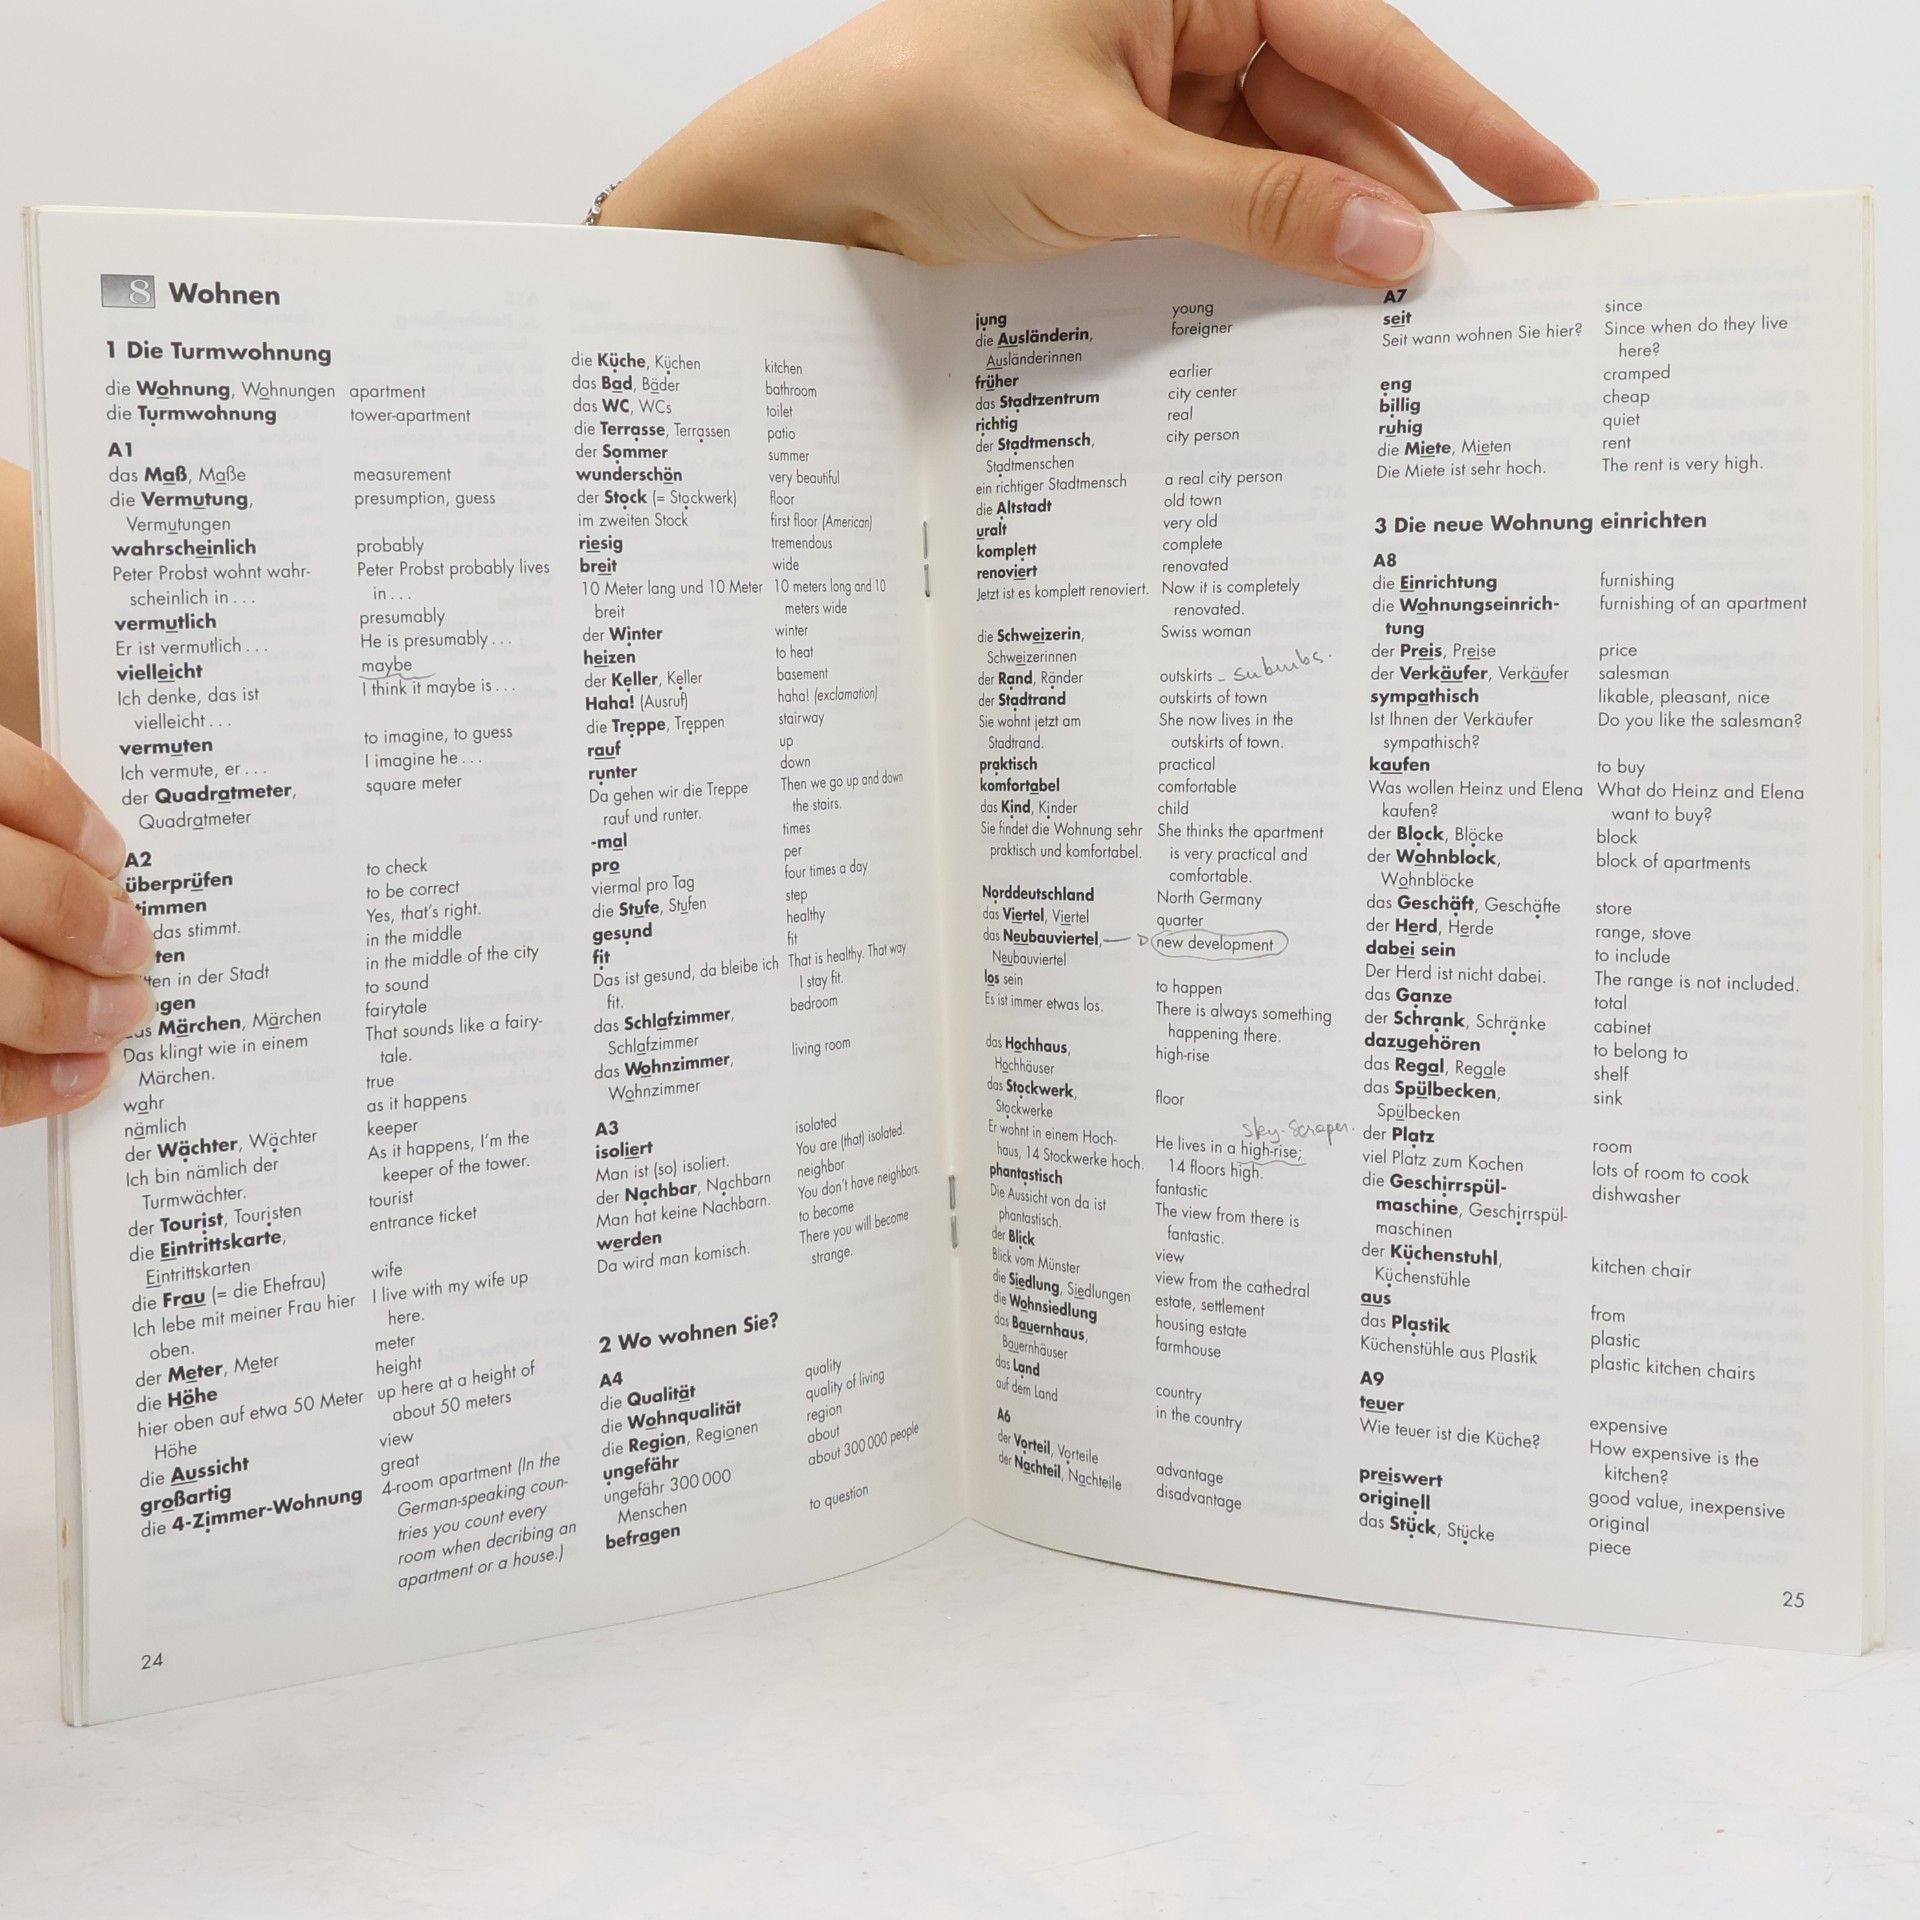 8 Wohnen
1 Die Turmwohnung
die Wohnung, Wohnungen apartment
die Turmwohnung tower-apartment
A1
das Maß, Maße measurement
die Vermutung, presumption, guess
Vermutungen
wahrscheinlich probably
Peter Probst wohnt wahr- Peter Probst probably lives
scheinlich in . . . in . . .
vermutlich presumably
Er ist vermutlich . . . He is presumably . . .
vielleicht maybe
Ich denke, das ist I think it maybe is . . .
vielleicht . . .
vermuten to imagine, to guess
Ich vermute, er . . . I imagine he . . .
der Quadratmeter, square meter
Quadratmeter
A2
überprüfen to check
timmen to be correct
das stimmt. Yes, that's right.
ten in the middle
ten in der Stadt in the middle of the city
ngen to sound
Märchen, Märchen fairytale
Das klingt wie in einem That sounds like a fairy-
Märchen. tale.
wahr true
nämlich as it happens
der Wächter, Wächter keeper
Ich bin nämlich der As it happens, I'm the
Turmwächter. keeper of the tower.
der Tourist, Touristen tourist
die Eintrittskarte, entrance ticket
Eintrittskarten
die Frau (= die Ehefrau) wife
Ich lebe mit meiner Frau hier I live with my wife up
oben. here.
der Meter, Meter meter
die Höhe height
hier oben auf etwa 50 Meter up here at a height of
Höhe about 50 meters
die Aussicht view
großartig great
die 4-Zimmer-Wohnung 4-room apartment (In the
German-speaking coun-
tries you count every
room when decribing an
apartment or a house.)
24
die Küche, Küchen kitchen
das Bad, Bäder bathroom
das WC, WCs toilet
die Terrasse, Terrassen patio
der Sommer summer
wunderschön very beautiful
der Stock (= Stockwerk) floor
im zweiten Stock first floor (American)
riesig tremendous
breit wide
10 Meter lang und 10 Meter 10 meters long and 10
breit meters wide
der Winter winter
heizen to heat
der Keller, Keller basement
Haha! (Ausruf) haha! (exclamation)
die Treppe, Treppen stairway
rauf up
runter down
Da gehen wir die Treppe Then we go up and down
rauf und runter. the stairs.
-mal times
pro per
viermal pro Tag four times a day
die Stufe, Stufen step
gesund healthy
fit fit
Das ist gesund, da bleibe ich That is healthy. That way
fit. I stay fit.
das Schlafzimmer, bedroom
Schlafzimmer
das Wohnzimmer, living room
Wohnzimmer
A3
isoliert isolated
Man ist (so) isoliert. You are (that) isolated.
der Nachbar, Nachbarn neighbor
Man hat keine Nachbarn. You don't have neighbors.
werden to become
Da wird man komisch. There you will become
strange.
2 Wo wohnen Sie?
A4
die Qualität quality
die Wohnqualität quality of living
die Region, Regionen region
ungefähr about
ungefähr 300 000 about 300 000 people
Menschen
befragen to question
jung young
die Ausländerin, foreigner
Ausländerinnen
früher earlier
das Stadtzentrum city center
richtig real
der Stadtmensch, city person
Stadtmenschen
ein richtiger Stadtmensch a real city person
die Altstadt old town
uralt very old
komplett complete
renoviert renovated
Jetzt ist es komplett renoviert. Now it is completely
renovated.
die Schweizerin, Swiss woman
Schweizerinnen
der Rand, Ränder outskirts - suburbs.
der Stadtrand outskirts of town
Sie wohnt jetzt am She now lives in the
Stadtrand. outskirts of town.
praktisch practical
komfortabel comfortable
das Kind, Kinder child
Sie findet die Wohnung sehr She thinks the apartment
praktisch und komfortabel. is very practical and
comfortable.
Norddeutschland North Germany
das Viertel, Viertel quarter
das Neubauviertel, new development
Neubauviertel
los sein to happen
Es ist immer etwas los. There is always something
happening there.
das Hochhaus, high-rise
Hochhäuser
das Stockwerk, floor
Stockwerke
sky-scraper.
Er wohnt in einem Hoch- He lives in a high-rise;
haus, 14 Stockwerke hoch. 14 floors high.
phantastisch fantastic
Die Aussicht von da ist The view from there is
phantastisch. fantastic.
der Blick view
Blick vom Münster view from the cathedral
die Siedlung, Siedlungen estate, settlement
die Wohnsiedlung housing estate
das Bauernhaus, farmhouse
Bauernhäuser
das Land country
auf dem Land in the country
A6
der Vorteil, Vorteile advantage
der Nachteil, Nachteile disadvantage
A7
seit since
Seit wann wohnen Sie hier? Since when do they live
here?
eng cramped
billig cheap
ruhig quiet
die Miete, Mieten rent
Die Miete ist sehr hoch. The rent is very high.
3 Die neue Wohnung einrichten
A8
die Einrichtung furnishing
die Wohnungseinrich- furnishing of an apartment
tung
der Preis, Preise price
der Verkäufer, Verkäufer salesman
sympathisch likable, pleasant, nice
Ist Ihnen der Verkäufer Do you like the salesman?
sympathisch?
kaufen to buy
Was wollen Heinz und Elena What do Heinz and Elena
kaufen? want to buy?
der Block, Blöcke block
der Wohnblock, block of apartments
Wohnblöcke
das Geschäft, Geschäfte store
der Herd, Herde range, stove
dabei sein to include
Der Herd ist nicht dabei. The range is not included.
das Ganze total
der Schrank, Schränke cabinet
dazugehören to belong to
das Regal, Regale shelf
das Spülbecken, sink
Spülbecken
der Platz room
viel Platz zum Kochen lots of room to cook
die Geschirrspül- dishwasher
maschine, Geschirrspül-
maschinen
der Küchenstuhl, kitchen chair
Küchenstühle
aus from
das Plastik plastic
Küchenstühle aus Plastik plastic kitchen chairs
A9
teuer expensive
Wie teuer ist die Küche? How expensive is the
kitchen?
preiswert good value, inexpensive
originell original
das Stück, Stücke piece
25